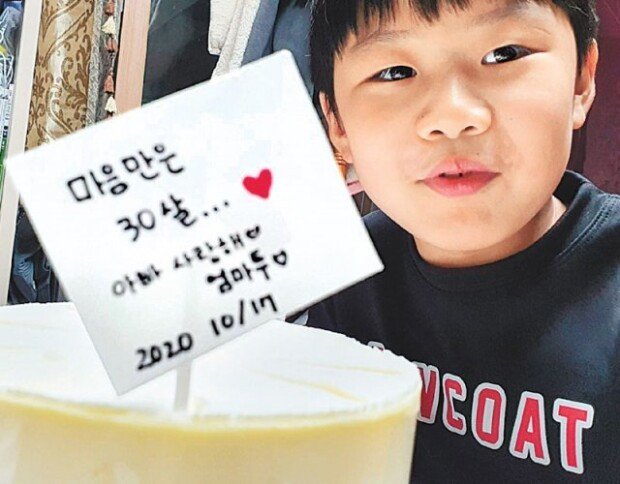 마음만은
30살...
아빠 사랑해♡
엄마두♡
2020 10/17
COAT